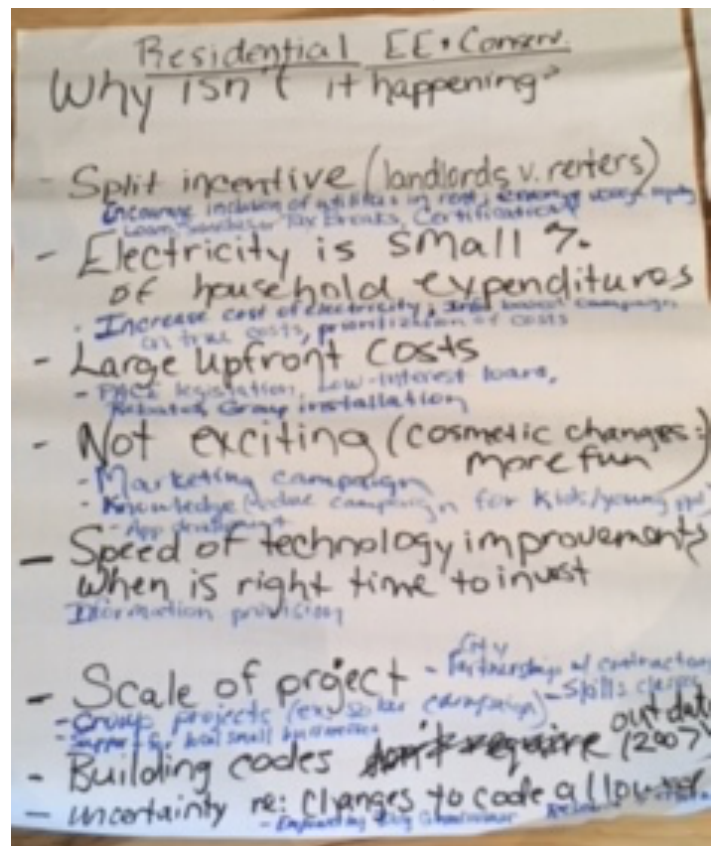 Residential EE + Conserv.
Why isn't it happening?
- Split incentive (landlords v. renters)
Encourage inclusion of utilities in rent,
Tax Breaks, Certification
- Electricity is small %
of household expenditures
- Increase cost of electricity, campaign
on true costs, prioritization of costs
- Large upfront costs
- PACE legislation, Low-interest loans,
Rebates, Group installation
- Not exciting (cosmetic changes:
more fun)
- Marketing campaign
- Knowledge campaign for kids/young ppl)
- App development
- Speed of technology improvements
when is right time to invest
Information provision
- Scale of project
- City Partnership w/ contractors
- Skills classes
- Group projects (ex. solar campaign)
- support for local small businesses
- Building codes out dated (2007)
- uncertainty re: changes to code